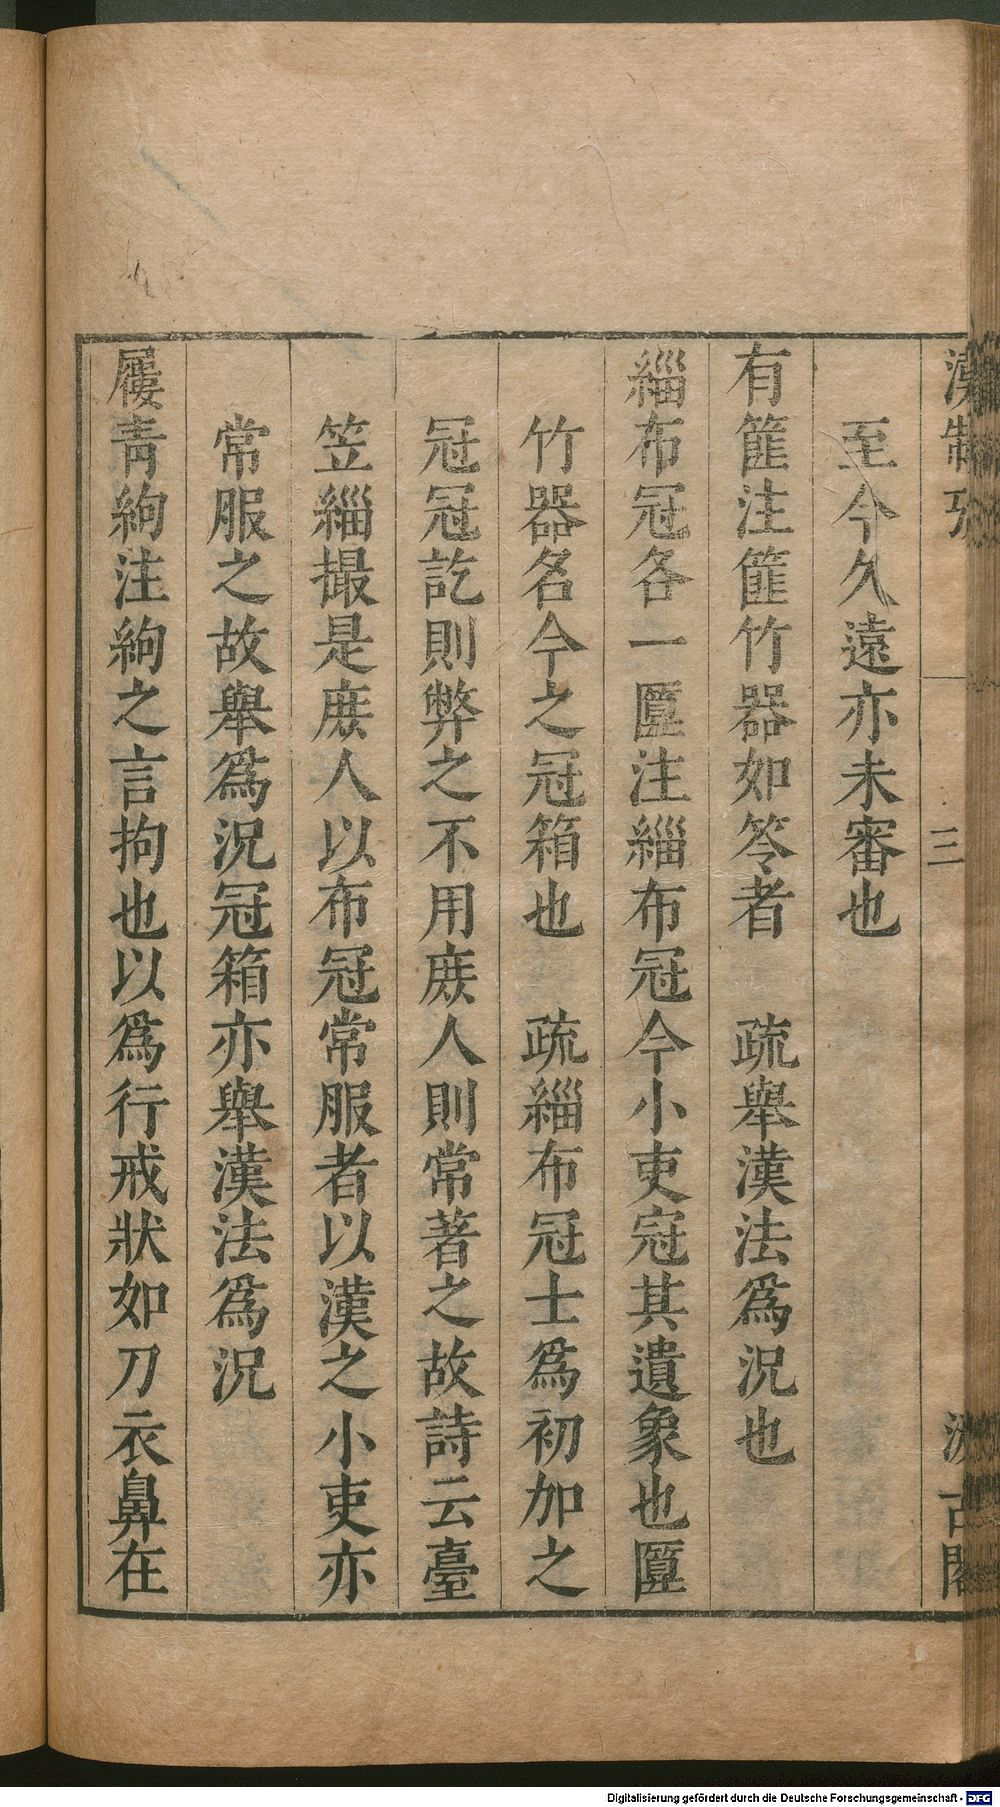 漢制攷
三
汲古閣
至今久遠亦未審也
有篚注篚竹器如笭者　疏舉漢法爲況也
緇布冠各一匴注緇布冠今小吏冠其遺象也匴
竹器名今之冠箱也　疏緇布冠士爲初加之
冠冠訖則弊之不用庻人則常著之故詩云臺
笠緇撮是庻人以布冠常服者以漢之小吏亦
常服之故舉爲況冠箱亦舉漢法爲況
屨靑絇注絇之言拘也以爲行戒狀如刀衣鼻在
Digitalisierung gefördert durch die Deutsche Forschungsgemeinschaft - DFG